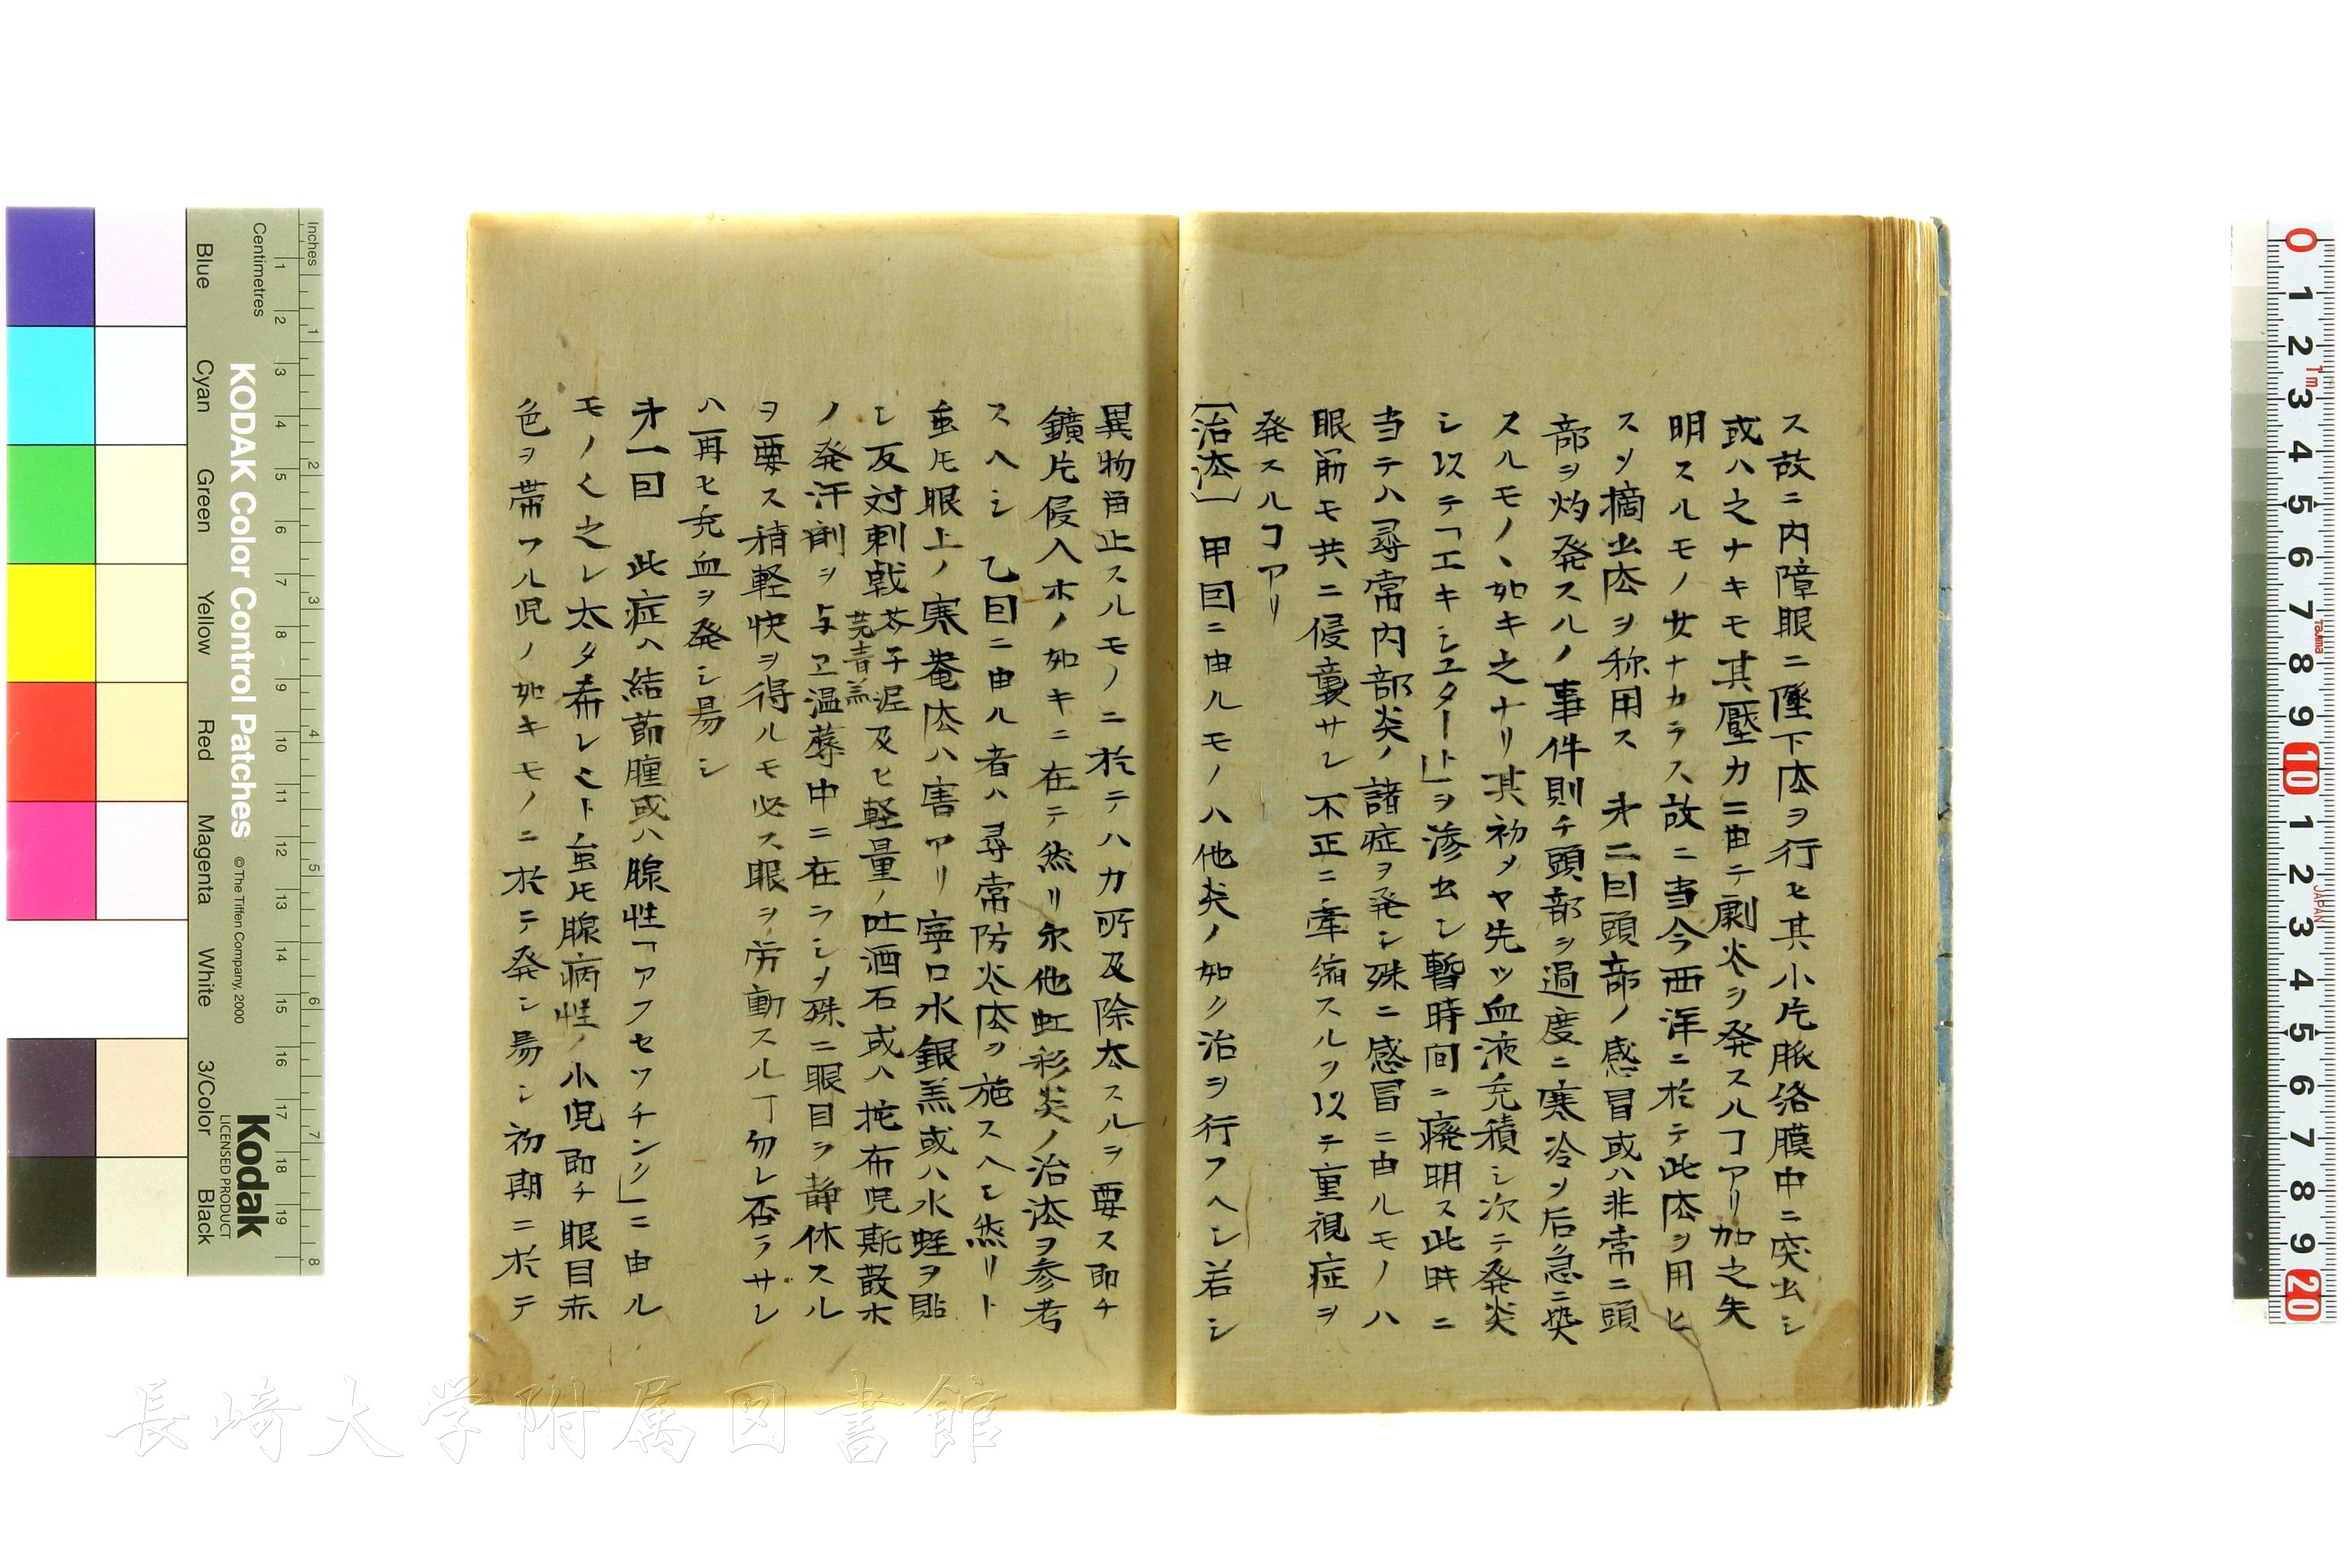 ス故ニ内障眼ニ墜下法ヲ行セ其小片脈絡膜中ニ突出シ
或ハ之ナキモ其壓力ニ由テ劇炎ヲ発スルコアリ加之失
明スルモノ廿ナカラス故ニ当今西洋ニ於テ此法ヲ用ヒ
スソ摘出法ヲ称用ス 才二因頭部ノ感冒或ハ非常ニ頭
部ヲ灼発スルノ事件則チ頭部ヲ過度ニ寒冷ソ后急ニ熒
スルモノヽ如キ之ナリ其初メヤ先ツ血液充積シ次テ発炎
シ以テ「エキシユタート」ヲ滲出シ暫時间ニ廃明ス此時ニ
当テハ尋常内部炎ノ諸症ヲ発シ殊ニ感冒ニ由ルモノハ
眼筋モ共ニ侵襲サレ不正ニ牽縮スルヲ以テ重視症ヲ
発スルコアリ
〔治法〕 甲因ニ由ルモノハ他炎ノ如ク治ヲ行フヘシ若シ
異物畱止スルモノニ於テハ力所及除去スルヲ要ス即チ
鑛片侵入ホノ如キニ在テ然リ尔他虹彩炎ノ治法ヲ参考
スヘシ 乙因ニ由ル者ハ尋常防炎法ヲ施スヘシ然リト
虽モ眼上ノ寒菴法ハ害アリ寧口水銀羔或ハ水蛭ヲ貼
シ反対刺戟芥子泥芫青羔及ヒ軽量ノ吐酒石或ハ挓布児斯散ホ
ノ発汗剤ヲ与ヱ温蓐中ニ在ラシメ殊ニ眼目ヲ静休スル
ヲ要ス稍軽快ヲ得ルモ必ス眼ヲ労動スル丁勿レ否ラサレ
ハ再ヒ充血ヲ発シ易シ
才一因 此症ハ結節腫或ハ腺性「アフセツチング」ニ由ル
モノく之レ太タ希レく卜虽モ腺病性ノ小児即チ眼目赤
色ヲ帯フル児ノ如キモノニ於テ発シ易シ初期ニ於テ
KODAK Color Control Patches
©The Tiffen Company, 2000
Kodak
LICENSED PRODUCT
Inches
Centimetres
Blue Cyan Green Yellow Red Magenta White 3/Color Black
長崎大学附属図書館